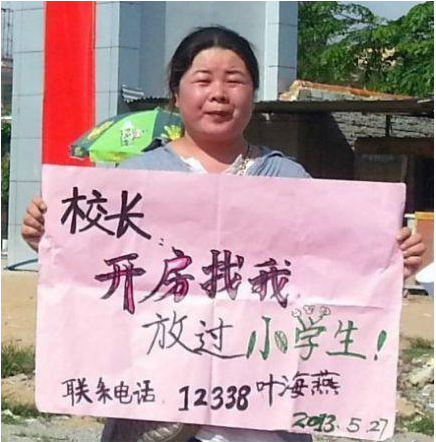 校长
开房找我
放过小学生!
联系电话 12338 叶海燕
2013.5.27